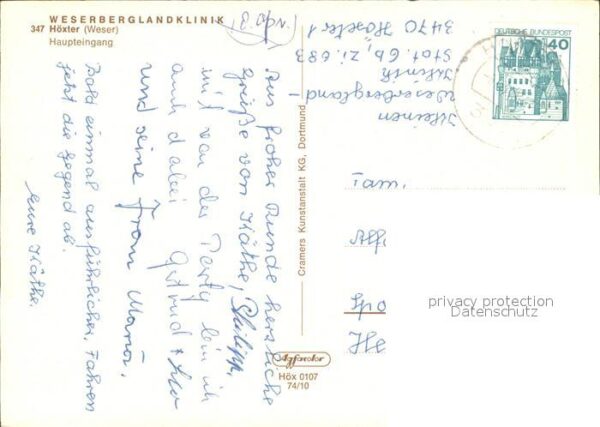 WESERBERGLANDKLINIK
347 Höxter (Weser)
Haupteingang
DEUTSCHE BUNDESPOST
40
Weserbergland-
Klinik
Stat. 6b, Zi. 683
3470 Höxter 1
Fam.
Aus froher Runde herzliche
Grüße von Käthe, Philipp,
mit von der Party bin ich
auch dabei Gertrud +
und seine Frau Maria.
Bald einmal ausführlicher. Fahren
jetzt die Gegend ab.
Eure Käthe.
Cramers Kunstanstalt KG, Dortmund
Agfacolor
Höx 0107
74/10
privacy protection
Datenschutz